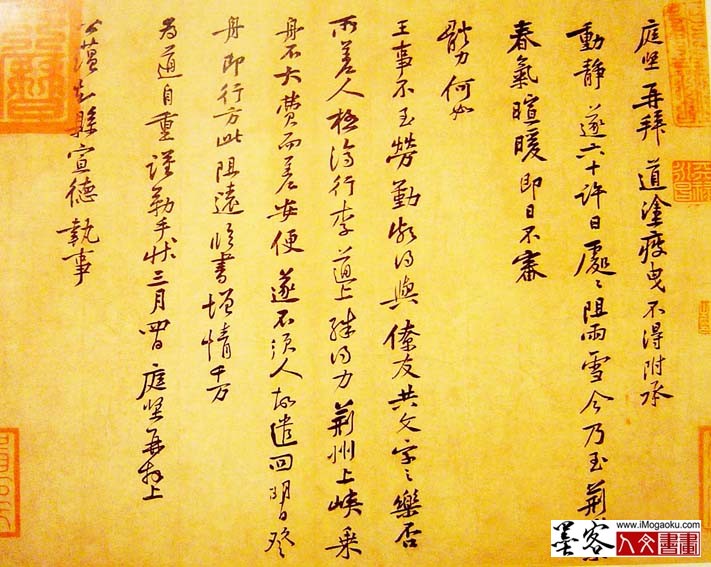 庭堅再拜 道塗疲曳 不得附承
動靜 遂六十許日 處〻阻雨雪 今乃至荆
春氣暄暖 即日不審
體力何如
王事不至勞勤 頗得與僚友共文字之樂否
所差人極濟行李 道上殊得力 荆州上峽乘
舟不大費而差安便 遂不須人 故遣回 明日登
舟即行 方此阻遠 臨書增情 千万
為道自重 謹勒手狀 三月四日 庭堅再拜上
公蘊知縣宣德 執事
墨客
www.iMogaoku.com
人文書畫